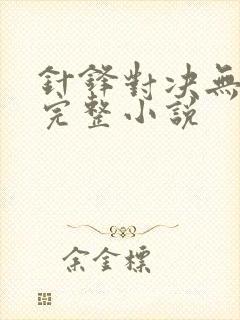 針鋒對決無
完整小説
余金標